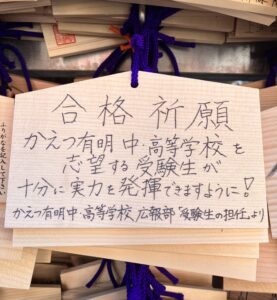 合格祈願
かえつ有明中・高等学校を
志望する受験生が
十分に実力を発揮できますように!
かえつ有明中・高等学校 広報部「受験生の担任」より
ふりがなを記入して下さい